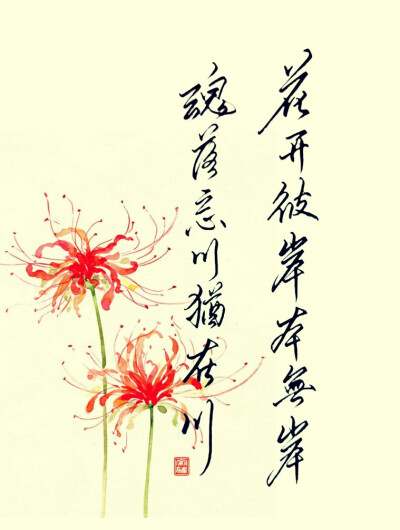 花开彼岸本無岸
魂落忘川猶在川